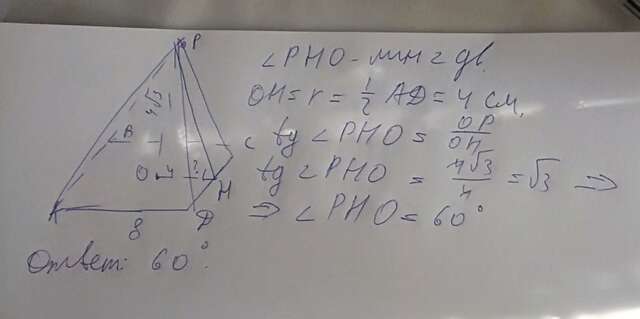 P
4√3
B
C
O
4
?
H
D
8
∠PHO - лин ∠ дв.
OH = r = 1/2 AD = 4 см.
tg ∠PHO = OP/OH
tg ∠PHO = 4√3/4 = √3 ⇒
⇒ ∠PHO = 60°
Ответ: 60°.